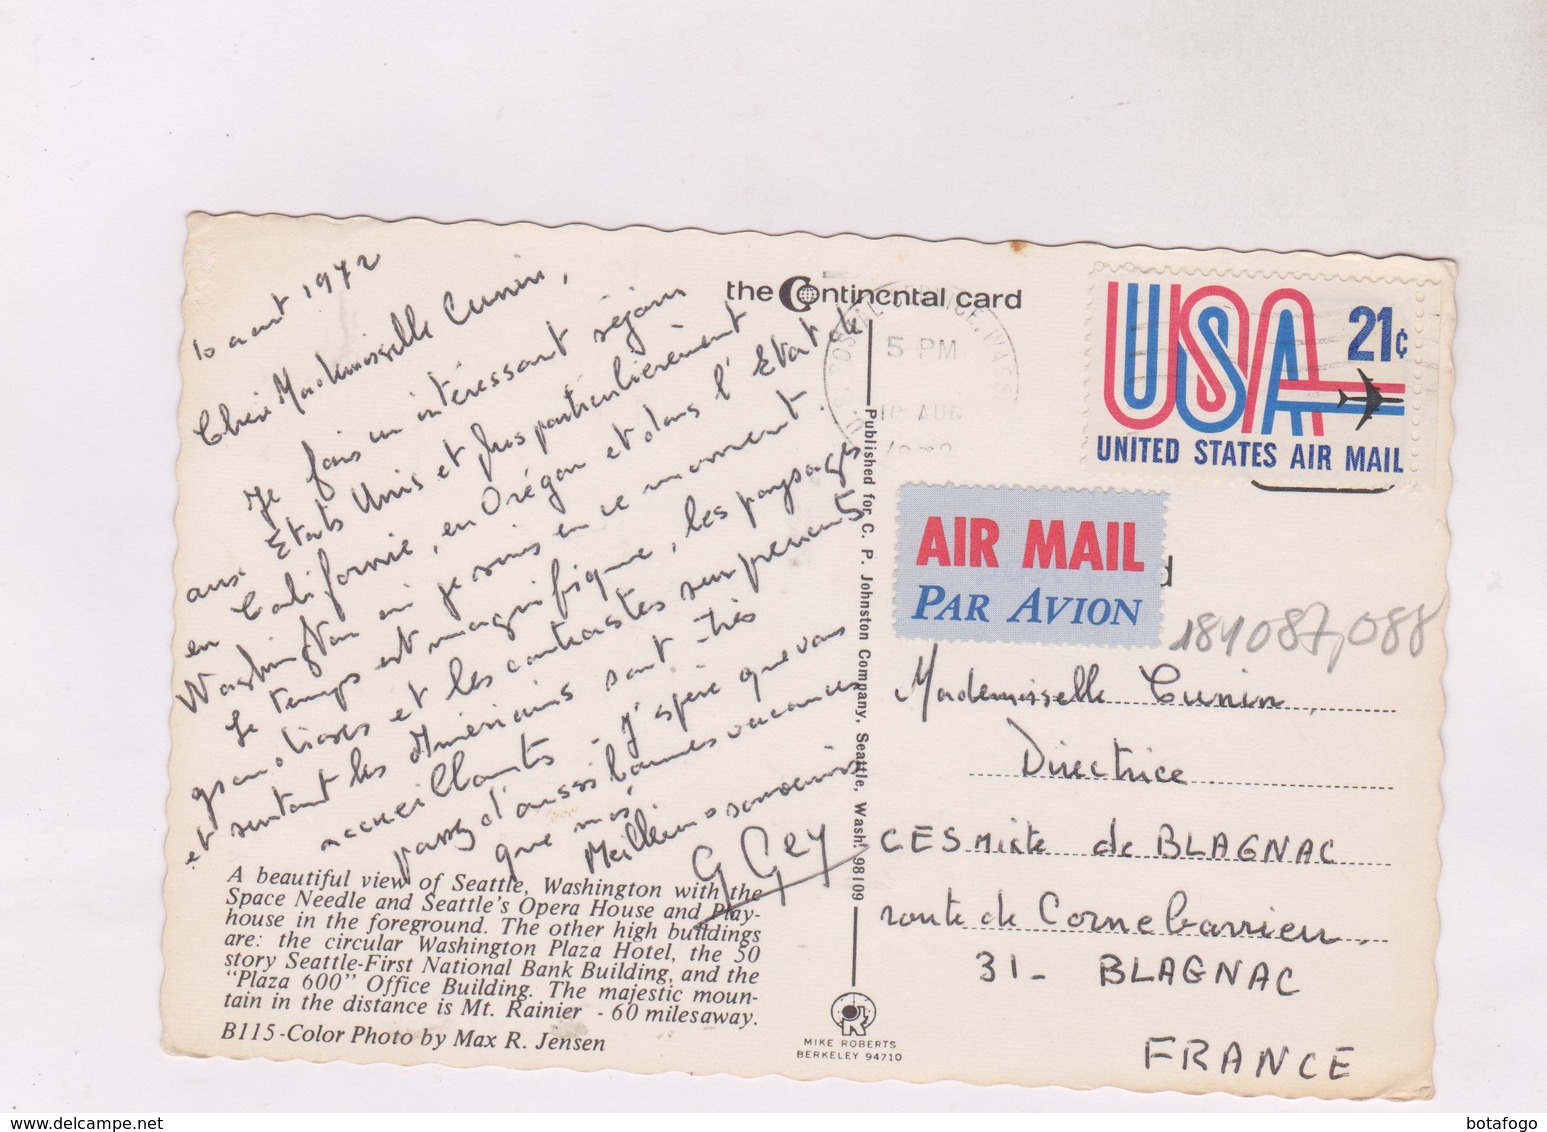 10 aout 1972
Chère Mademoiselle Cunin,
Je fais un intéressant séjour
aux Etats Unis et plus particulièrement
en Californie, en Orégon et dans l'Etat de
Washington où je suis en ce moment.
Le temps est magnifique, les paysages
grandioses et les contrastes surprenants
et surtout les Américains sont très
accueillants. J'espère que vous
passez d'aussi bonnes vacances
que moi.
Meilleurs souvenirs
G Gey
A beautiful view of Seattle, Washington with the
Space Needle and Seattle's Opera House and Play-
house in the foreground. The other high buildings
are: the circular Washington Plaza Hotel, the 50
story Seattle-First National Bank Building, and the
"Plaza 600" Office Building. The majestic moun-
tain in the distance is Mt. Rainier - 60 milesaway.
B115-Color Photo by Max R. Jensen
the Continental card
Published for C. P. Johnston Company, Seattle, Wash. 98109
MIKE ROBERTS
BERKELEY 94710
POSTAL SERVICE, WA
5 PM
AUG
USA
21¢
UNITED STATES AIR MAIL
AIR MAIL
PAR AVION
d
184087,088
Mademoiselle Cunin,
Directrice
CES Mixte de BLAGNAC
route de Cornebarrieu.
31- BLAGNAC
FRANCE
www.delcampe.net
botafogo